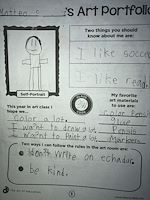 's Art Portfolio
Two things you should
know about me are:
I like soccer
I like read
Self-Portrait
This year in art class I
hope we...
Color a lot.
I want to draw a lot
I want to Paint a lot
My favorite
art materials
to use are:
Color Pensils
Glue
Pensils
Markers
Two ways I can follow the rules in the art room are:
don't write on echadur.
be kind.